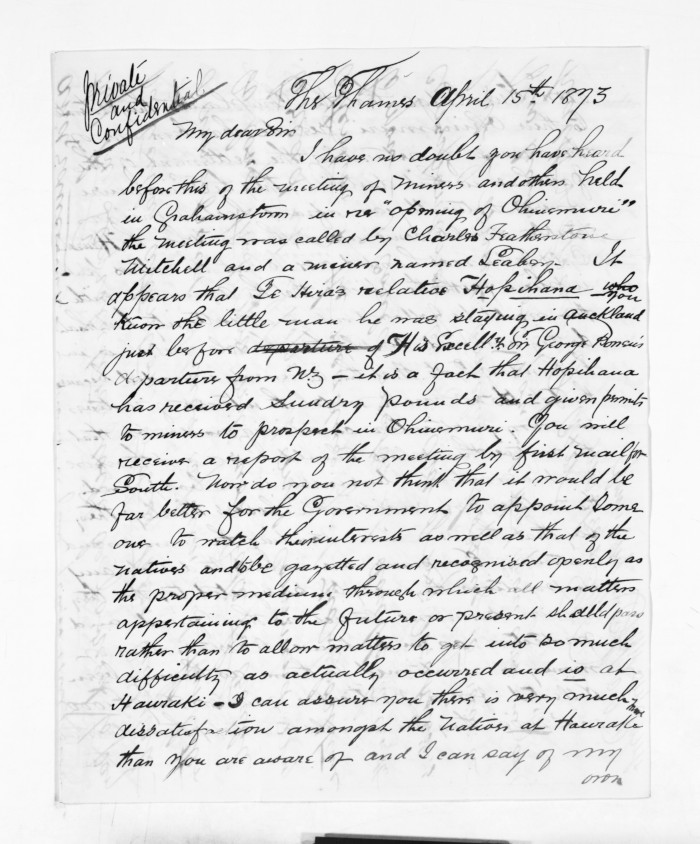 Private
and
Confidential
The Thames April 15th 1873
My dear Sir
I have no doubt you have heard
before this of the meeting of Miners and others held
in Grahamstown in re "opening of Ohinemuri"
the meeting was called by Charles Featherstone
Mitchell and a miner named Leahey. It
appears that Te Hira's relative Hopihana who you
know the little man he was staying in Auckland
just before departure of His Excell'y Sir George Bowen's
departure from NZ — it is a fact that Hopihana
has received Sundry pounds and given permits
to miners to prospect in Ohinemuri. You will
receive a report of the meeting by first mail for
South. Now do you not think that it would be
far better for the Government to appoint some
one to watch their interests as well as that of the
natives and be gazetted and recognised openly as
the proper medium through which all matters
appertaining to the future or present should pass
rather than to allow matters to get into so much
difficulty as actually occurred and is at
Hauraki — I can assure you there is very much more
dissatisfation amongst the natives at Hauraki
than you are aware of and I can say of my
own